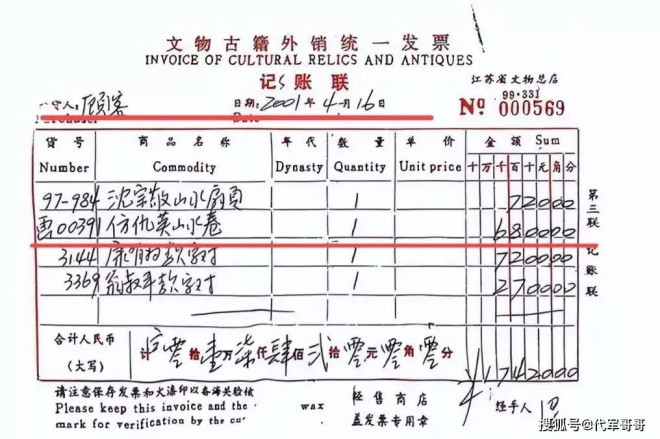 文物古籍外销统一发票
INVOICE OF CULTURAL RELICS AND ANTIQUES
记账联
江苏省文物总店
99·331
顾客 日期:2001年4月16日
Date
№ 000569
货号 商品名称 年代 数量 单价 金额 Sum
Number Commodity Dynasty Quantity Unit price 十万千百十元角分
97-984 沈宗敬山水扇页 1 72000
画00391 仿仇英山水卷 1 680000
3144 款字对 1 720000
3369 翁叔平款字对 1 270000
合计人民币(大写) 零拾壹万柒仟肆佰贰拾零元零角零分 ¥1742000
第三联 记账联
请注意保存发票和火漆印以备海关验核
Please keep this invoice and the wax
mark for verification by the cu
经售商店
盖发票专用章
经手人
搜狐号@代军哥哥